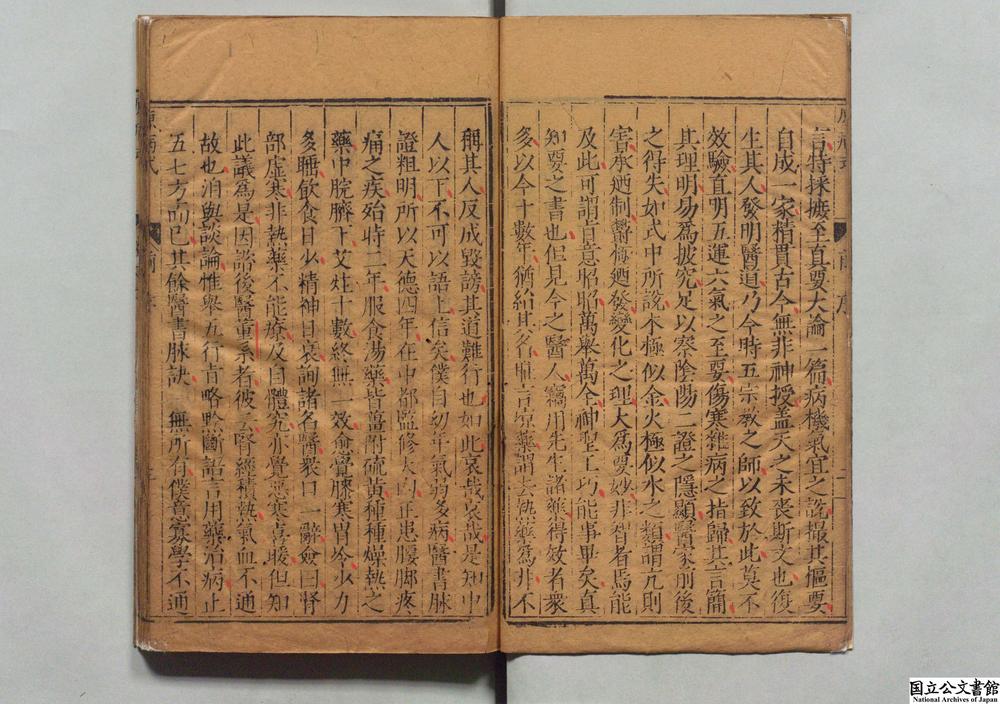 言特採摭至真要大論一篇病機氣宜之說撮其樞要
自成一家精貫古今無非神授蓋天之未喪斯文也復
生其人發明醫道乃今時五宗教之師以致於此莫不
效驗直明五運六氣之至要傷寒雜病之指歸其言簡
其理明易為披究足以察陰陽二證之隱顯醫家前後
之得失如式中所說木極似金火極似水之類謂亢則
害承迺制鬱極迺發變化之理大為要妙非智者焉能
及此可謂旨意昭昭萬舉萬全神聖工巧能事畢矣真
知要之書也但見今之醫人竊用先生諸藥得效者眾
多以今十數年猶紿其名無言涼藥謂去熱藥為非不
稱其人反成毀謗其道難行也如此哀哉哀哉是知中
人以下不可以語上信矣僕自幼年氣弱多病醫書脉
證粗明所以天德四年在中都監修大內正患腰脚疼
痛之疾殆時二年服食湯藥皆薑附硫黃種種燥熱之
藥中脘臍下艾炷十數終無一效愈覺膝寒胃冷少力
多睡飲食日少精神日衰詢諸名醫眾口一辭僉曰腎
部虛寒非熱藥不能療及自體究亦覺惡寒喜暖但知
此議為是因詣後醫董系者彼云腎經積熱氣血不通
故也洎與談論惟舉五行旨略默斷語言用藥治病止
五七方而已其餘醫書脉訣 無所有僕意寡學不通
原病式
序
國立公文書館
National Archives of Japan